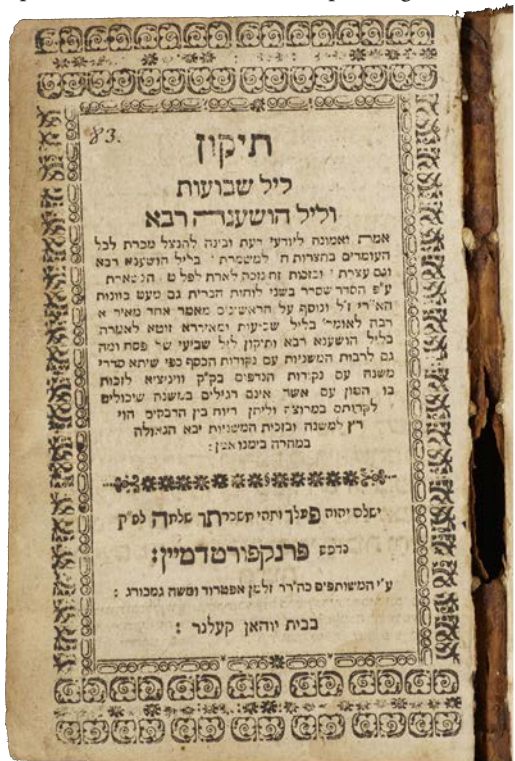 83.
תיקון
ליל שבועות
וליל הושענה רבא
אמרת ואמונה ליודעי דעת ובינה להנצל מכרת לכל
העומדים בחצרות ה׳ למשמרת בליל הושענא רבא
וגם עצרת ובזכות זה נזכה לארת
ע״פ הסדר שסדר בשני לוחות הברית גם מעט כוונות
הא״רי ז״ל ונוסף על הראשונים מאמר אחד
רבה לאומר׳ בליל שביעות ומאידרא זוטא לאמרה
בליל הושענא רבא ותיקון ליל שביעי של פסח ומה
גם לרבות המשניות עם נקודות הכסף כפי שיתא סדרי
משנה עם נקודות הנדפס בק״ק וויניציא לזכות
בו המון עם אשר אינם רגילים במשנה שיכולים
לקרותם במרוצה וליתן ריוח בין הדבקים הוי
רץ למשנה ובזכית המשניות יבא הגאולה
במהרה בימנו אמן :
ישלם יהוה פעלך ותהי משכרתך שלמה לפ״ק
נדפס פרנקפורטדמיין :
ע״י המשותפים כה׳רר זלמן אפטרוד ומשה גמבורג :
בבית יוהאן קעלנר :